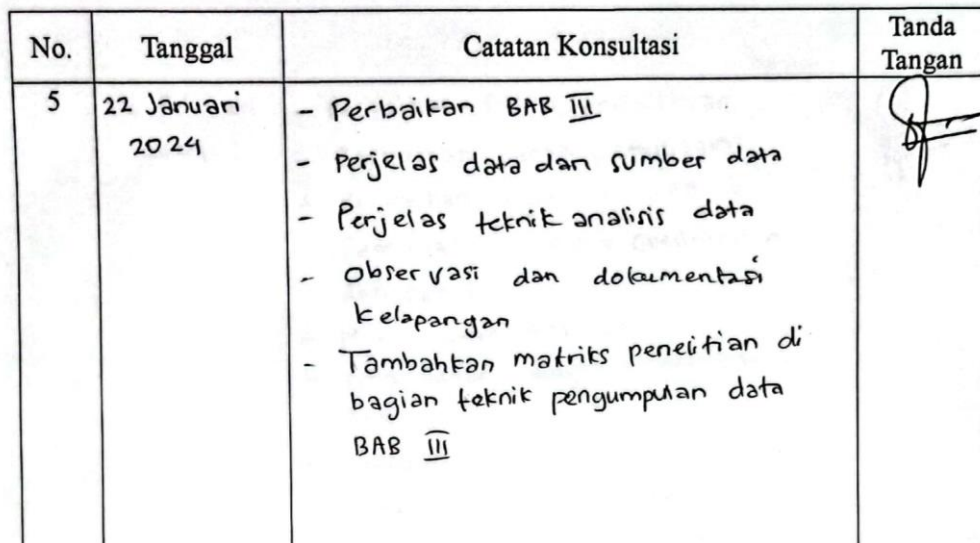 No. Tanggal Catatan Konsultasi Tanda Tangan
5 22 Januari 2024
- Perbaikan BAB III
- Perjelas data dan sumber data
- Perjelas teknik analisis data
- Observasi dan dokumentasi
kelapangan
- Tambahkan matriks penelitian di
bagian teknik pengumpulan data
BAB III